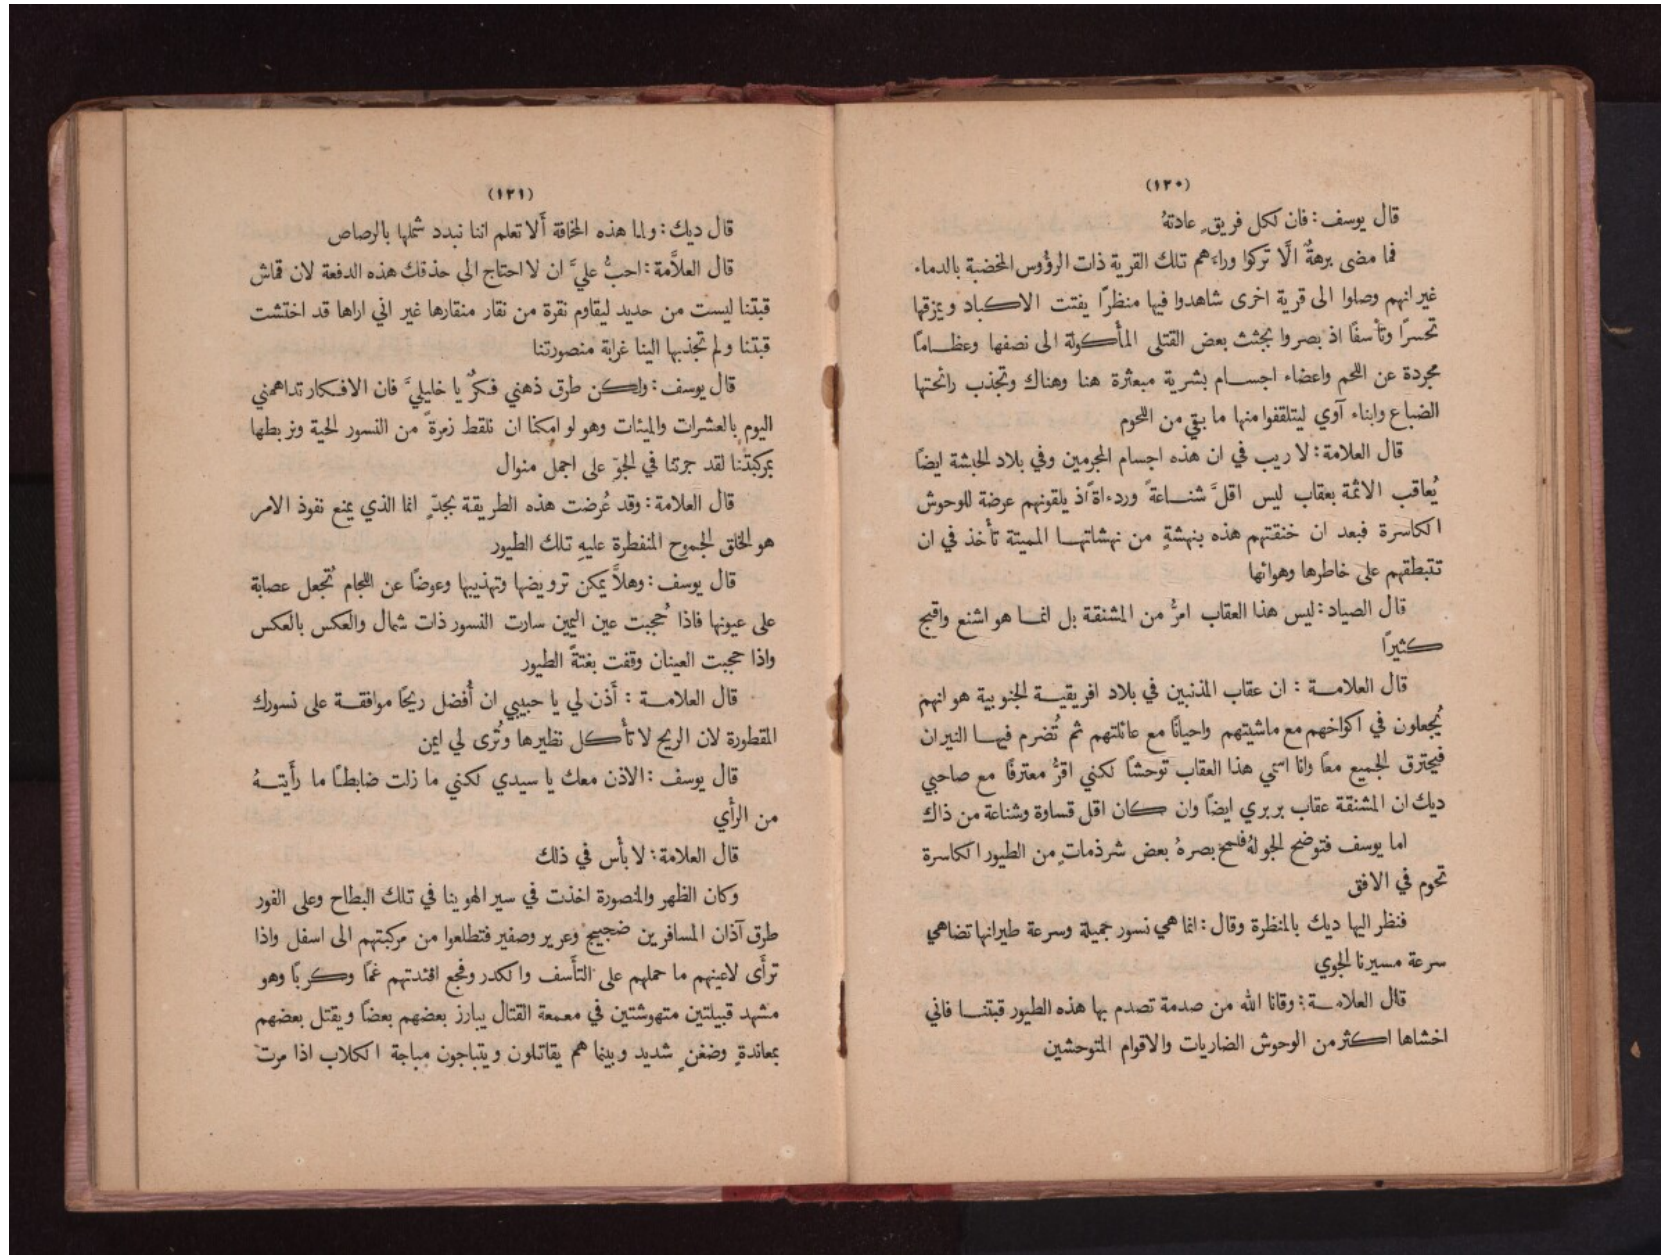 (١٢٠)
قال يوسف: فان لكل فريقٍ عادتهُ
فما مضى برهةٌ الَّا تركوا وراءهم تلك القرية ذات الرؤوس المخضبة بالدماء
غير انهم وصلوا الى قرية اخرى شاهدوا فيها منظرًا يفتت الاكباد ويمزقها
تحسرًا وتأسفًا اذ بصروا بجثث بعض القتلى المأكولة الى نصفها وعظامًا
مجردة عن اللحم واعضاء اجسام بشرية مبعثرة هنا وهناك وتجذب رائحتها
الضباع وابناء آوي ليتلقفوا منها ما بقي من اللحوم
قال العلامة: لا ريب في ان هذه اجسام المجرمين وفي بلاد الحبشة ايضًا
يُعاقب الاثمة بعقاب ليس اقلَّ شناعةً ورداءةً اذ يلقونهم عرضة للوحوش
الكاسرة فبعد ان خنقتهم هذه بنهشةٍ من نهشاتها المميتة تأخذ في ان
تتبطقهم على خاطرها وهواتها
قال الصياد: ليس هذا العقاب امرُّ من المشنقة بل انما هو اشنع واقبح
كثيرًا
قال العلامة: ان عقاب المذنبين في بلاد افريقية الجنوبية هو انهم
يُجعلون في اكواخهم مع ماشيتهم واحيانًا مع عائلتهم ثم تُضرم فيها النيران
فيحترق الجميع معًا وانا اسمي هذا العقاب توحشًا لكني اقرُّ معترفًا مع صاحبي
ديك ان المشنقة عقاب بربري ايضًا وان كان اقل قساوة وشناعة من ذاك
اما يوسف فتوضح الجو لهُ فلمح بصرهُ بعض شرذماتٍ من الطيور الكاسرة
تحوم في الافق
فنظر اليها ديك بالمنظرة وقال: انما هي نسور جميلة وسرعة طيرانها تضاهي
سرعة مسيرنا الجوي
قال العلامة: وقانا الله من صدمة تصدم بها هذه الطيور قبتنا فاني
اخشاها اكثر من الوحوش الضاريات والاقوام المتوحشين
(١٢١)
قال ديك: ولما هذه المخافة أَلا تعلم اننا نبدد شملها بالرصاص
قال العلاَّمة: احبُّ عليَّ ان لا احتاج الى حذقك هذه الدفعة لان قماش
قبتنا ليست من حديد ليقاوم نقرة من نقار منقارها غير اني اراها قد اختشت
قبتنا ولم تجذبها الينا غرابة منصورتنا
قال يوسف: ولكن طرق ذهني فكرٌ يا خليليَّ فان الافكار تداهمني
اليوم بالعشرات والمئات وهو لو امكنا ان نلقط زمرةً من النسور الحية ونربطها
بمركبتنا لقد جرتنا في الجوّ على اجمل منوال
قال العلامة: وقد عُرضت هذه الطريقة بجدٍّ انما الذي يمنع نفوذ الامر
هو الخلق الجموح المنفطرة عليهِ تلك الطيور
قال يوسف: وهلاَّ يمكن ترويضها وتهذيبها وعوضًا عن اللجام تُجعل عصابة
على عيونها فاذا حُجبت عين اليمين سارت النسور ذات شمال والعكس بالعكس
واذا حجبت العينان وقفت بغتةً الطيور
قال العلامة: أَذن لي يا حبيبي ان أُفضل ريحًا موافقة على نسورك
المقطورة لان الريح لا تأكل نظيرها وتُرى لي ايمن
قال يوسف: الاذن معك يا سيدي لكني ما زلت ضابطًا ما رأَيتهُ
من الرأْي
قال العلامة: لا بأس في ذلك
وكان الظهر والمنصورة اخذت في سير الهوينا في تلك البطاح وعلى الفور
طرق آذان المسافرين ضجيج وعرير وصفير فتطلعوا من مركبتهم الى اسفل واذا
ترأَى لاعينهم ما حملهم على التأَسف والكدر وفجع افئدتهم غمًا وكربًا وهو
مشهد قبيلتين متهوشتين في معمعة القتال يبارز بعضهم بعضًا ويقتل بعضهم
بمعاندةٍ وضغنٍ شديد وبينما هم يقاتلون ويتباجون مباجة الكلاب اذا مرت